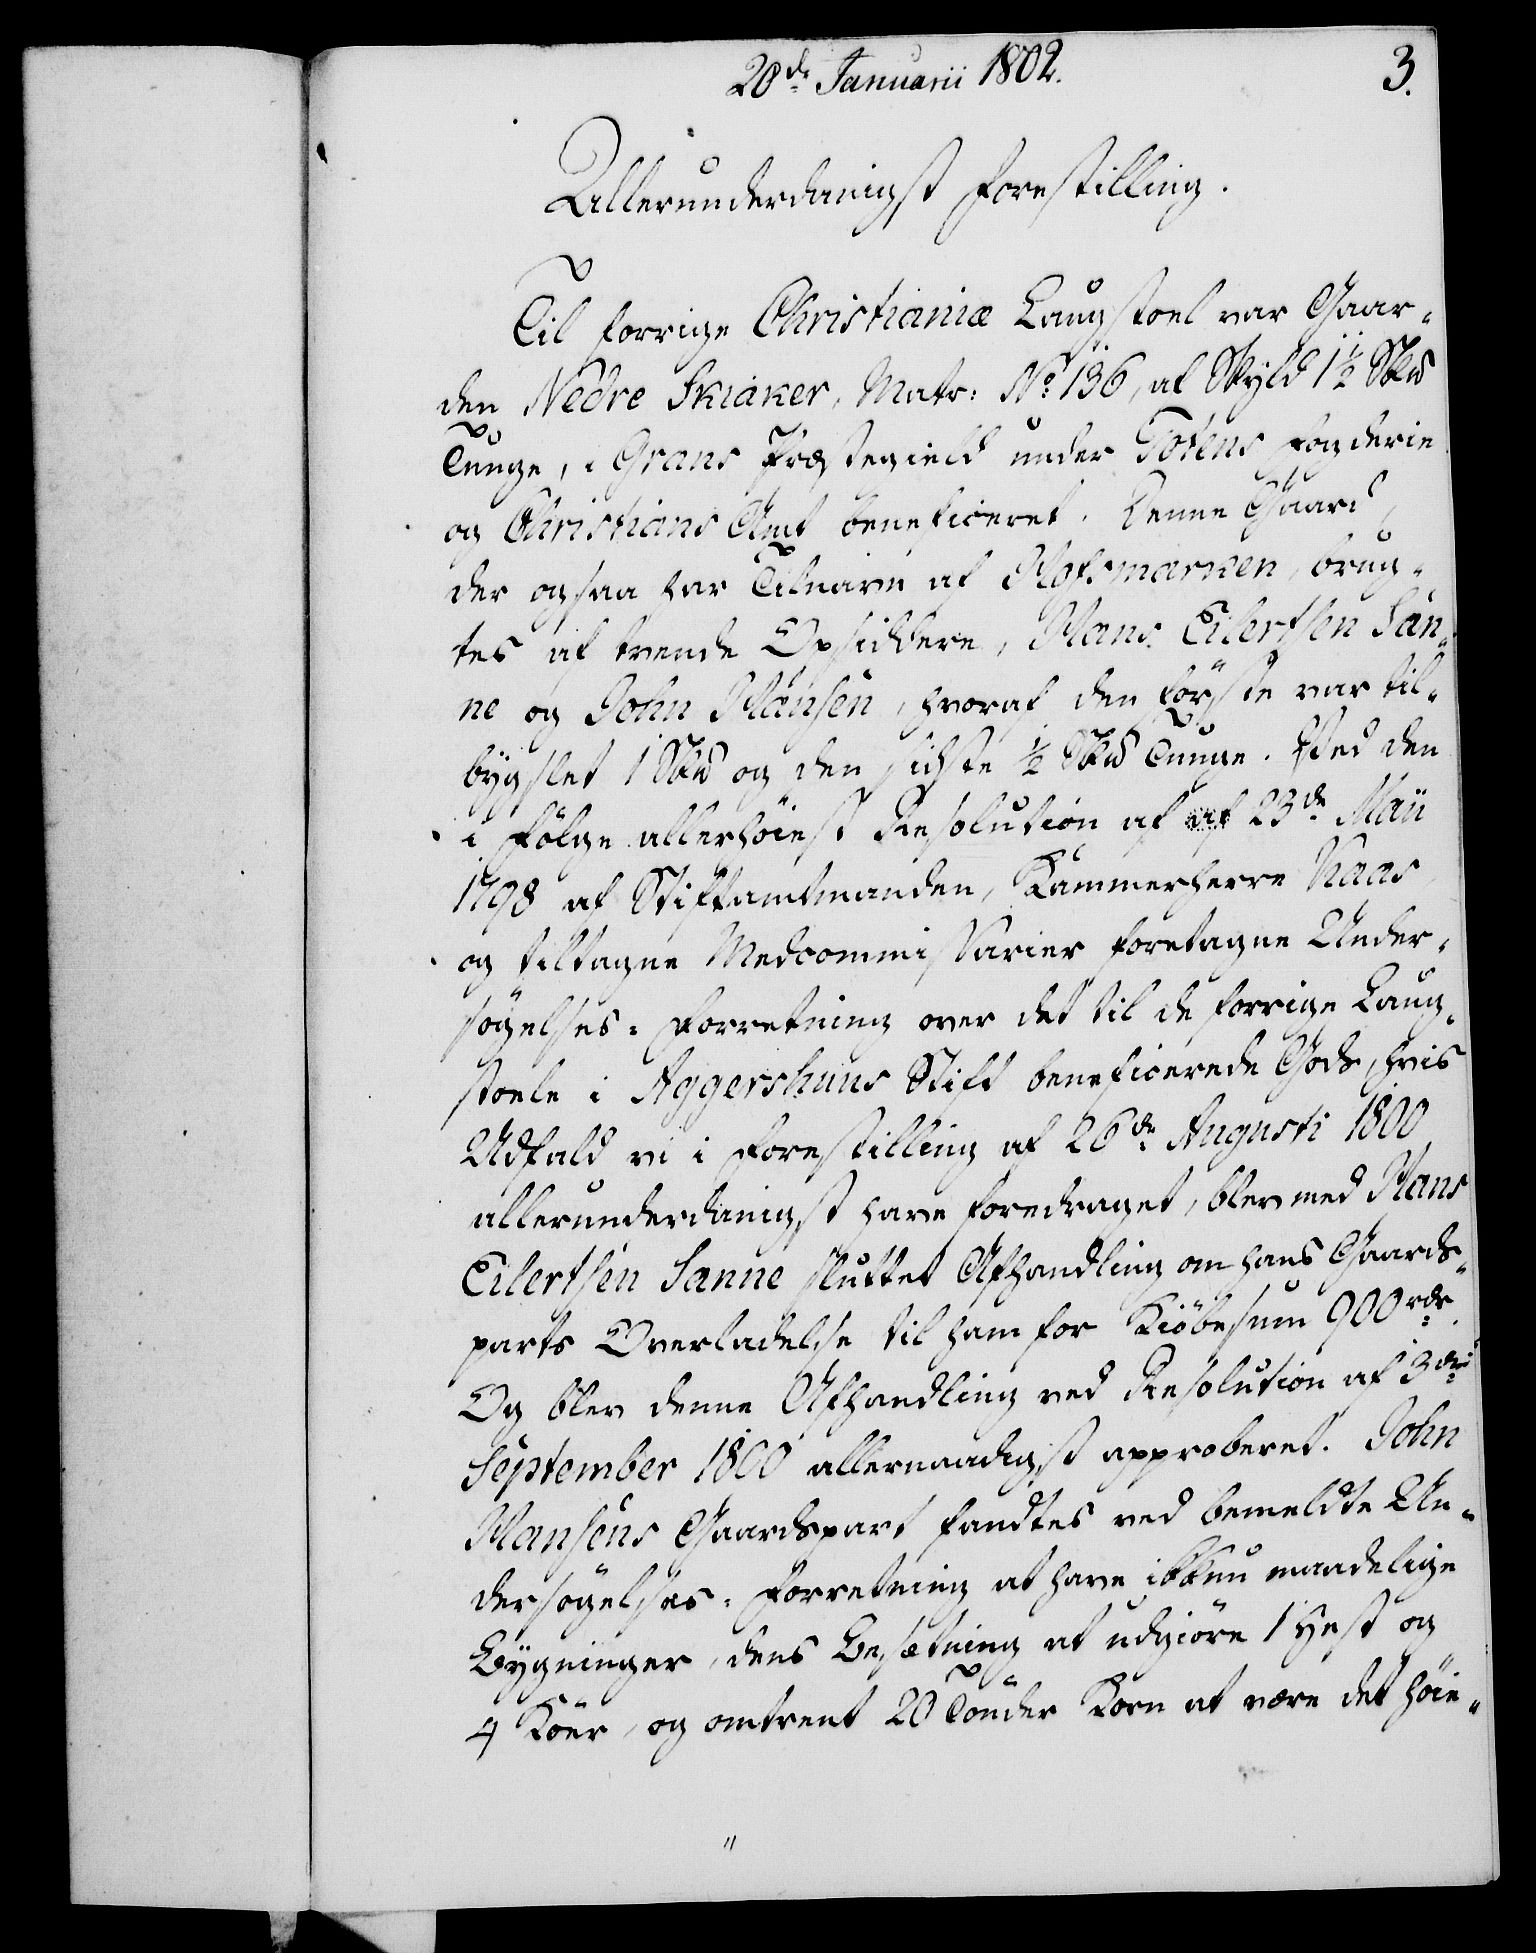 20de Januarii 1802.
3.
Allerunderdanigst Forestilling.
Til forrige Christianiæ Laugstoel var Gaar-
den Nedre Skiaker, Matr: No 136, af Skyld 1½ Skd
Tunge, i Grans Præstegield under Totens Fogderie
og Christians Amt beneficeret. Denne Gaard,
der ogsaa har Tilnavn af Hofsmarken, brug-
tes af tvende Opsiddere, Hans Eilertsen San-
ne og John Hansen, hvoraf den förste var til-
bÿgslet 1 Skd og den sidste ½ Skd Tunge. Ved den
i Fölge allerhöiest Resolution af af 23de Maii
1798 af Stiftamtmanden, Kammerherre Kaas
og tiltagne Medcommissarier foretagne Under-
sögelses-Forretning over det til de forrige Laug-
stoele i Aggershuus Stift beneficerede Gods, hvis
Udfald vi i Forestilling af 26de Augusti 1800
allerunderdanigst have foredraget, blev med Hans
Eilertsen Sanne sluttet Afhandling om hans Gaards-
parts Overladelse til ham for Kiöbesum 900 rdr.
Og blev denne Afhandling ved Resolution af 3die
September 1800 allernaadigst approberet. John
Hansens Gaardspart fandtes ved bemeldte Un-
dersögelses-Forretning at have ikkun maadelige
Bÿgninger, dens Besætning at udgiöre 1 Hest og
4 Köer, og omtrent 20 Tönder Korn at være det höie-